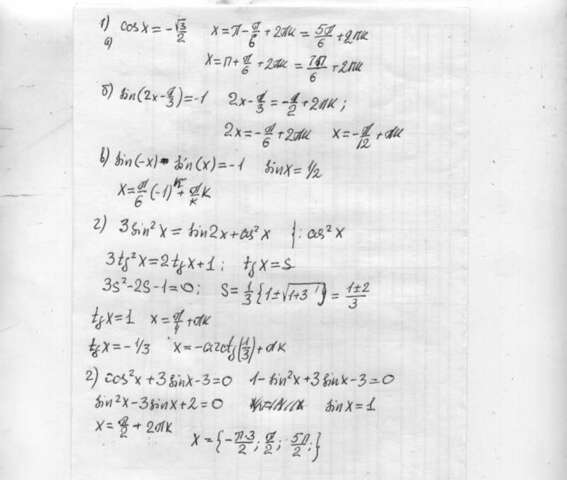 1) cos x = -√3/2   x = π - π/6 + 2πk = 5π/6 + 2πk
а)
x = π + π/6 + 2πk = 7π/6 + 2πk
б) sin(2x - π/3) = -1   2x - π/3 = -π/2 + 2πk ;
2x = -π/6 + 2πk   x = -π/12 + πk
в) sin(-x) - sin(x) = -1   sin x = 1/2
x = π/6 (-1)^k + π/k k
г) 3 sin²x = sin 2x + cos²x   } : cos²x
3tg²x = 2tgx + 1 ;   tgx = S
3S² - 2S - 1 = 0 ;   S = 1/3 {1 ± √1+3 } = 1±2/3
tgx = 1   x = π/4 + πk
tgx = -1/3   x = -arctg(1/3) + πk
2) cos²x + 3 sin x - 3 = 0   1 - sin²x + 3 sin x - 3 = 0
sin²x - 3 sin x + 2 = 0   sin x = 1
x = π/2 + 2πk
x = {-π·3/2 ; π/2 ; 5π/2 ; }